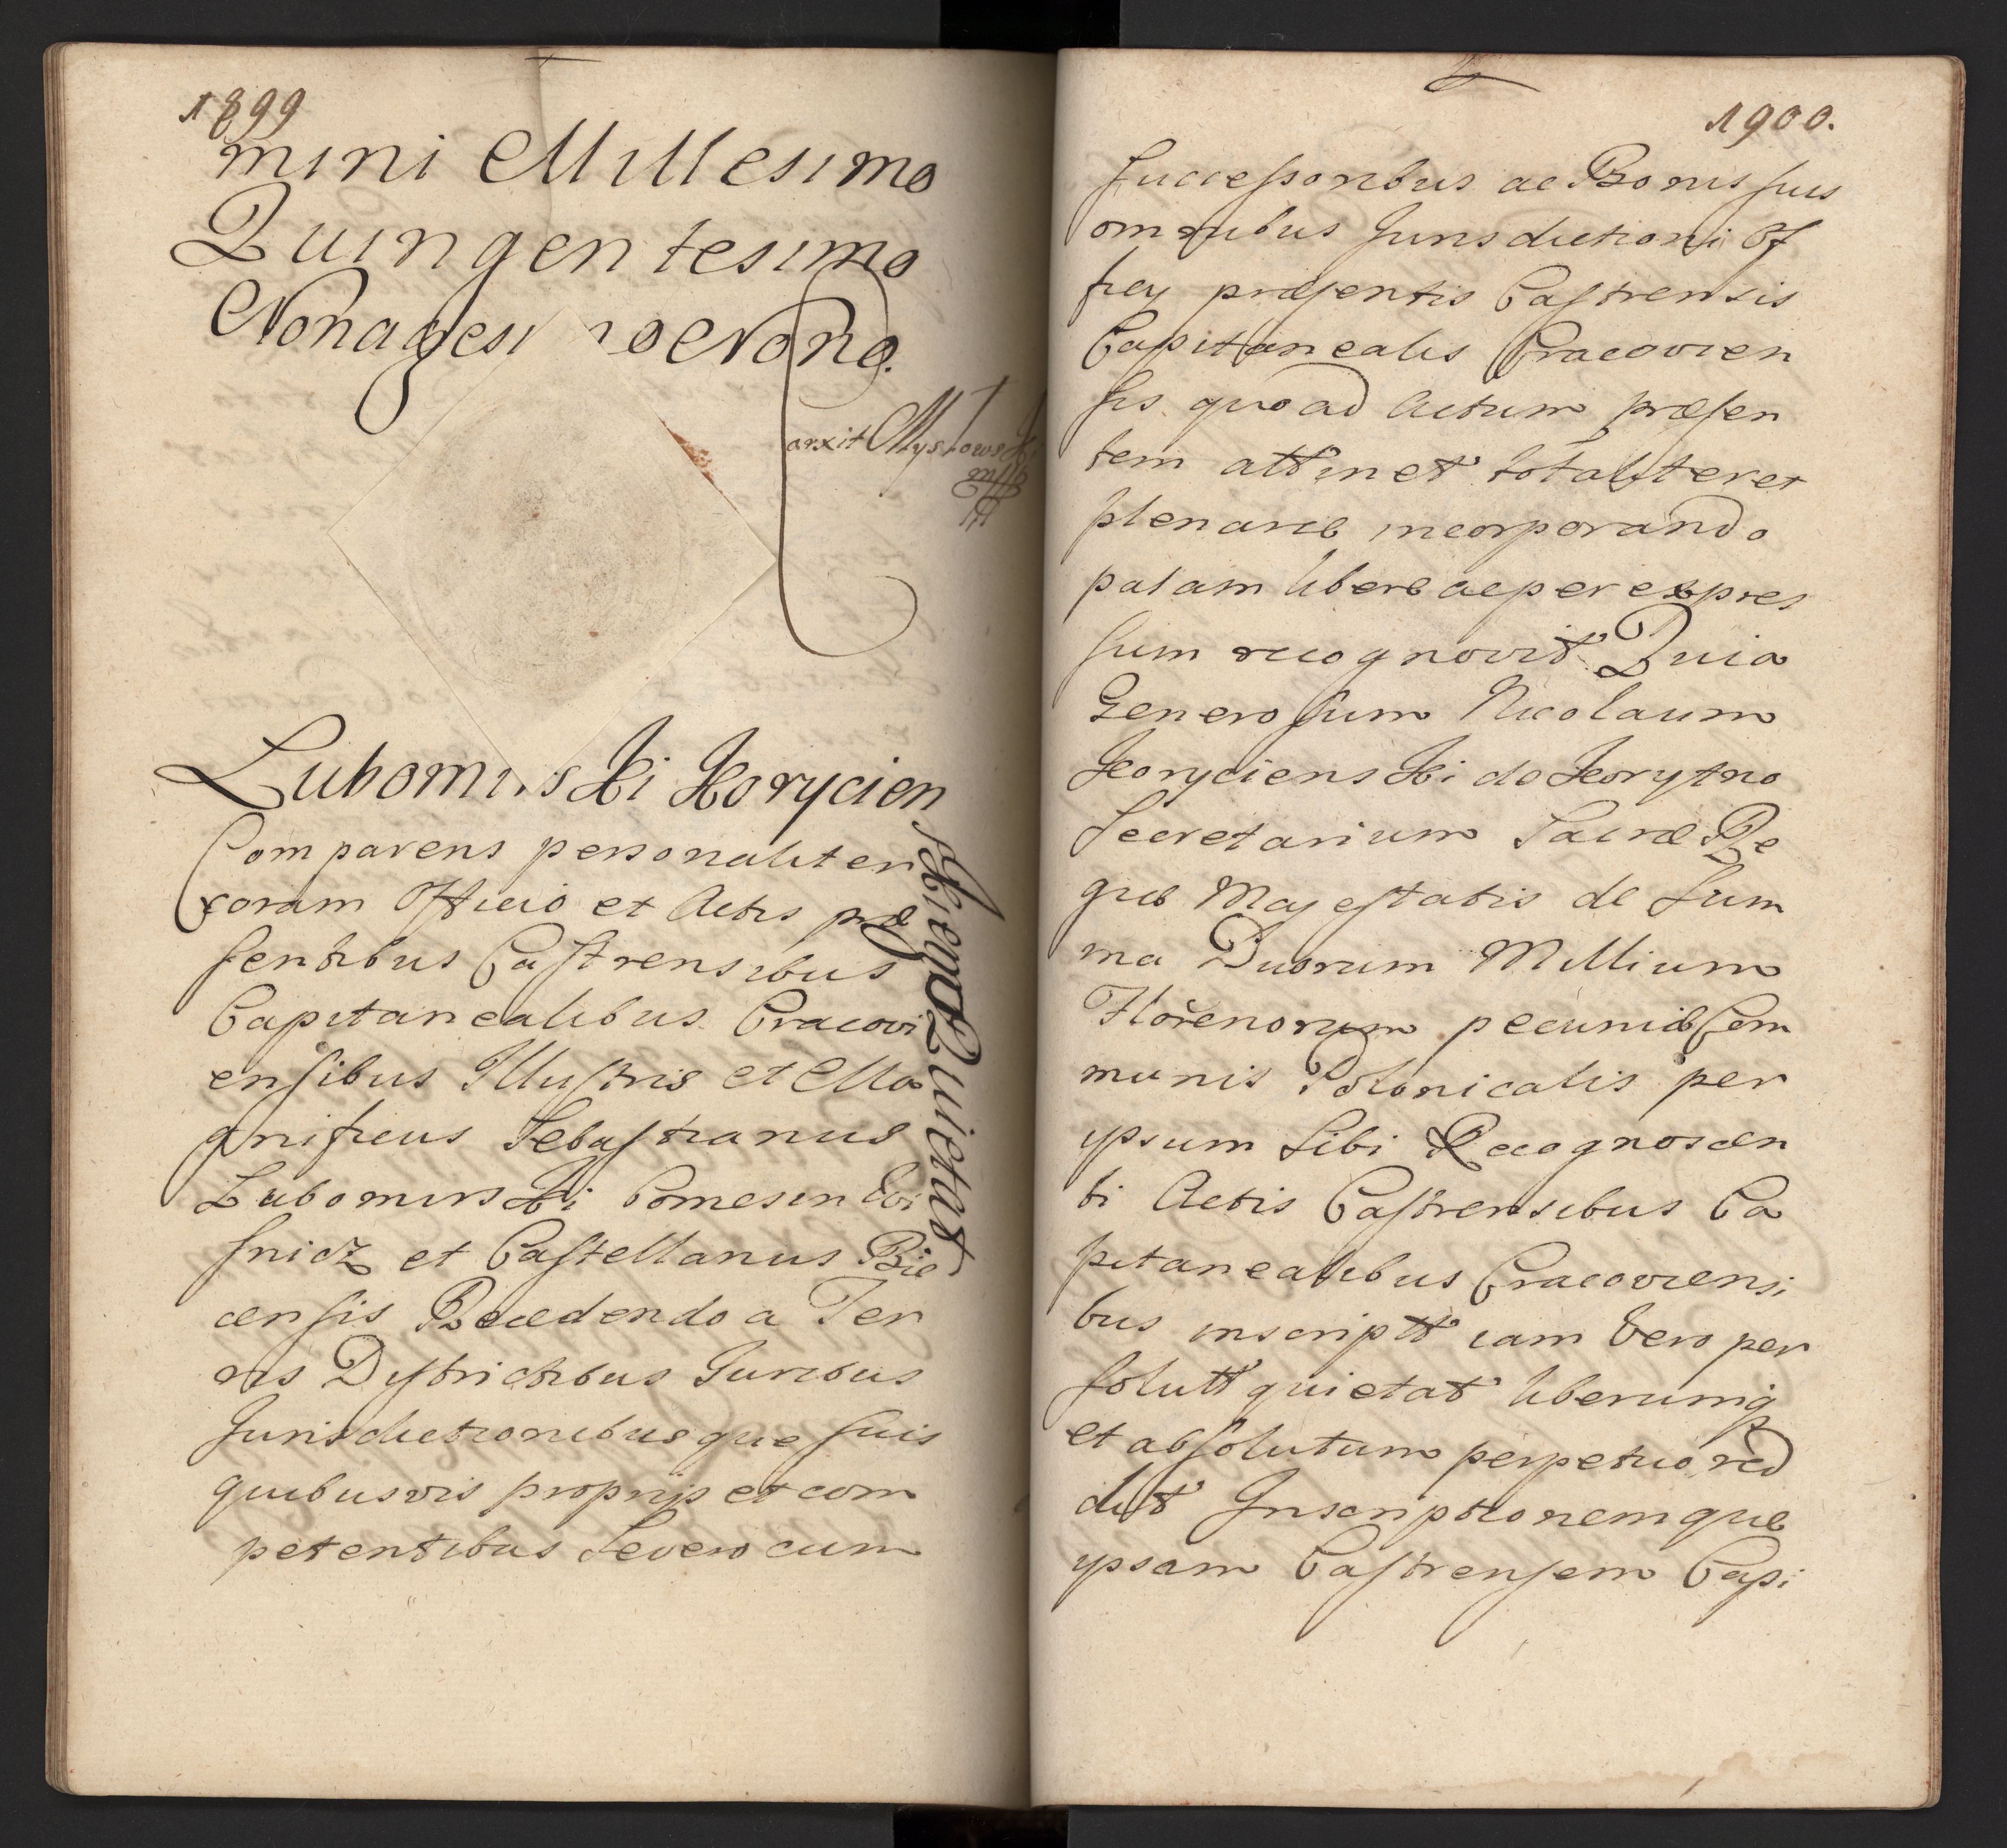 1899
mini Millesimo
Quingentesimo
Nonagesi mo Nono.
arxit Mystowski
mpp
Lubomirski Koryciens
skiego Quietat
Comparens personaliter
coram Officio et Actis præ
sentibus Castrensibus
Capitanealibus Cracovi
ensibus Illustris et Ma
gnificus Sebastianus
Lubomirski Comes in Wi
snicz et Castellanus Bie
censis Recedendo a Ter
ris Districtibus Juribus
Jurisdictionibusque suis
quibusvis proprijs et com
petentibus Severo cum
1900.
successoribus ac Bonis suis
omnibus Jurisdictioni Of
ficy præsentis Castrensis
Capitanealis Cracovien
sis quoad Actum præsen
tem attinet totaliter et
plenarie incorporando
palam libere ac per expres
sum recognovit Quia
Generosum Nicolaum
Korycienski de Korytno
Secretarium Sacræ Re
giæ Majestatis de Sum
ma Duorum Millium
Florenorum pecuniæ Com
munis Polonicalis per
ipsum Sibi Recognoscen
ti Actis Castrensibus Ca
pitanealibus Cracoviensi
bus inscriptt iam Vero per
solutt quietat liberumq
et absolutum perpetuo red
dit Inscriptionemque
ipsam Castrensem Capi